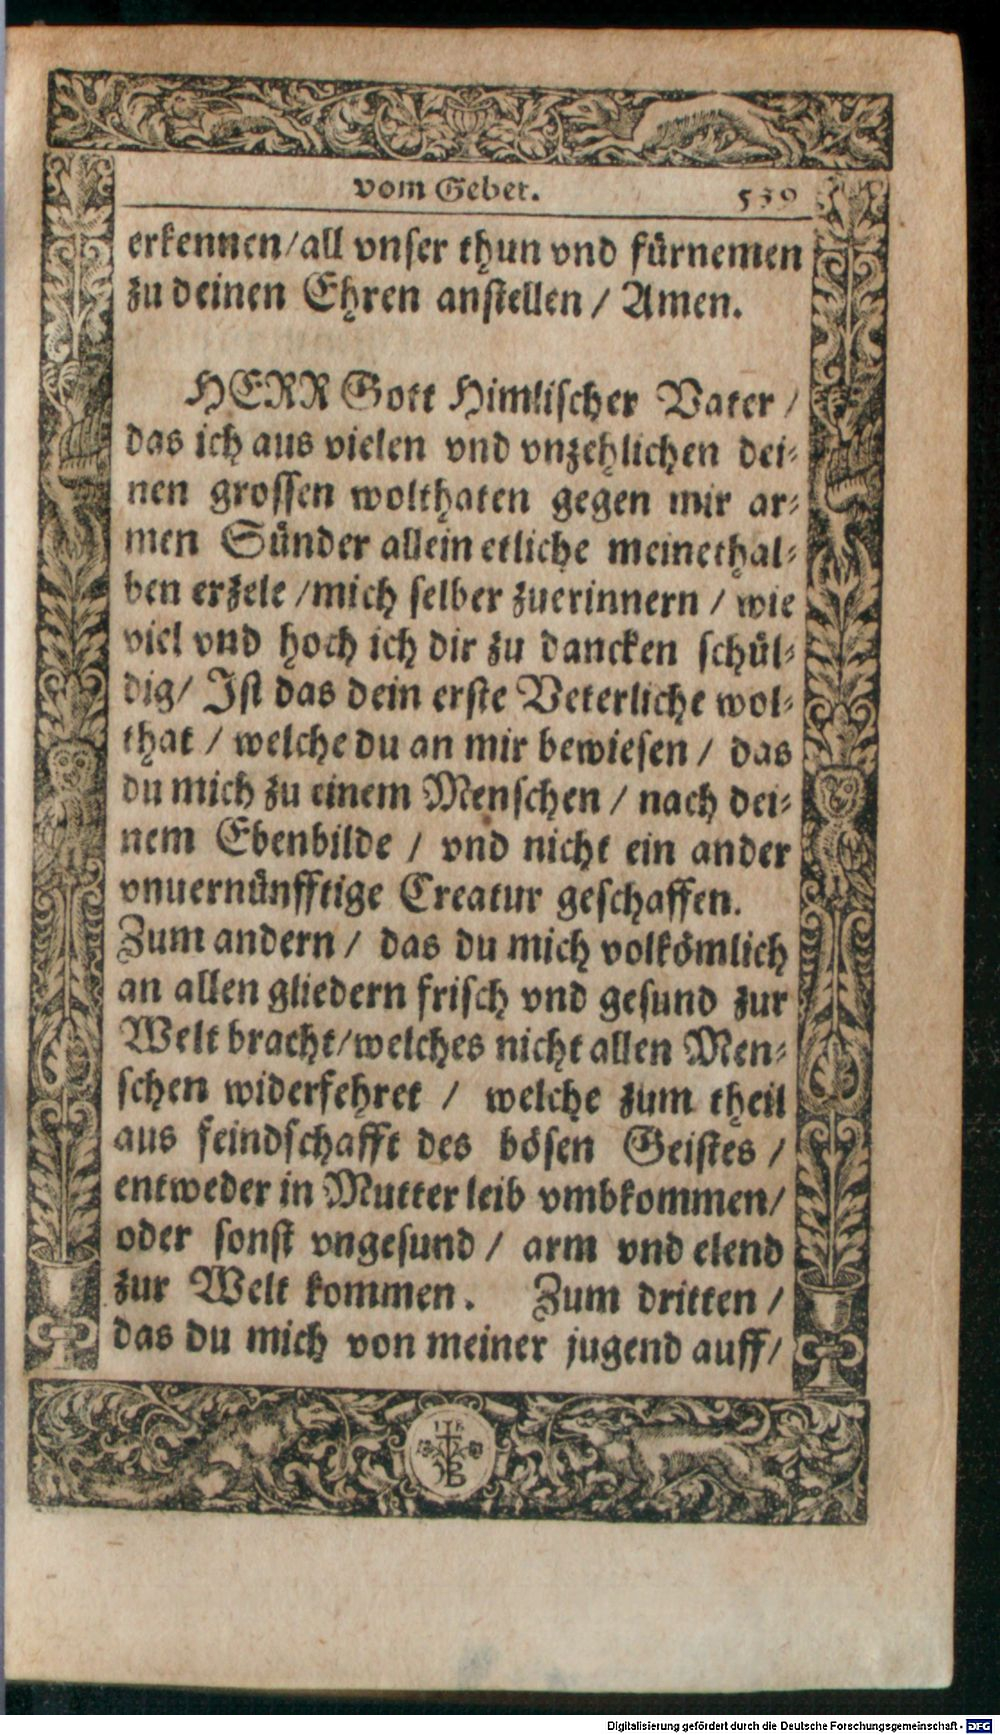 vom Gebet. 539
erkennen/all vnser thun vnd fürnemen
zu deinen Ehren anstellen / Amen.
HERR Gott Himlischer Vater /
das ich aus vielen vnd vnzehlichen dei-
nen grossen wolthaten gegen mir ar-
men Sünder allein etliche meinethal-
ben erzele /mich selber zuerinnern / wie
viel vnd hoch ich dir zu dancken schül-
dig/ Ist das dein erste Veterliche wol-
that / welche du an mir bewiesen / das
du mich zu einem Menschen / nach dei-
nem Ebenbilde / vnd nicht ein ander
vnuernünfftige Creatur geschaffen.
Zum andern / das du mich volkömlich
an allen gliedern frisch vnd gesund zur
Welt bracht/welches nicht allen Men-
schen widerfehret / welche zum theil
aus feindschafft des bösen Geistes /
entweder in Mutter leib vmbkommen/
oder sonst vngesund / arm vnd elend
zur Welt kommen. Zum dritten /
das du mich von meiner jugend auff/
Digitalisierung gefördert durch die Deutsche Forschungsgemeinschaft - DFG